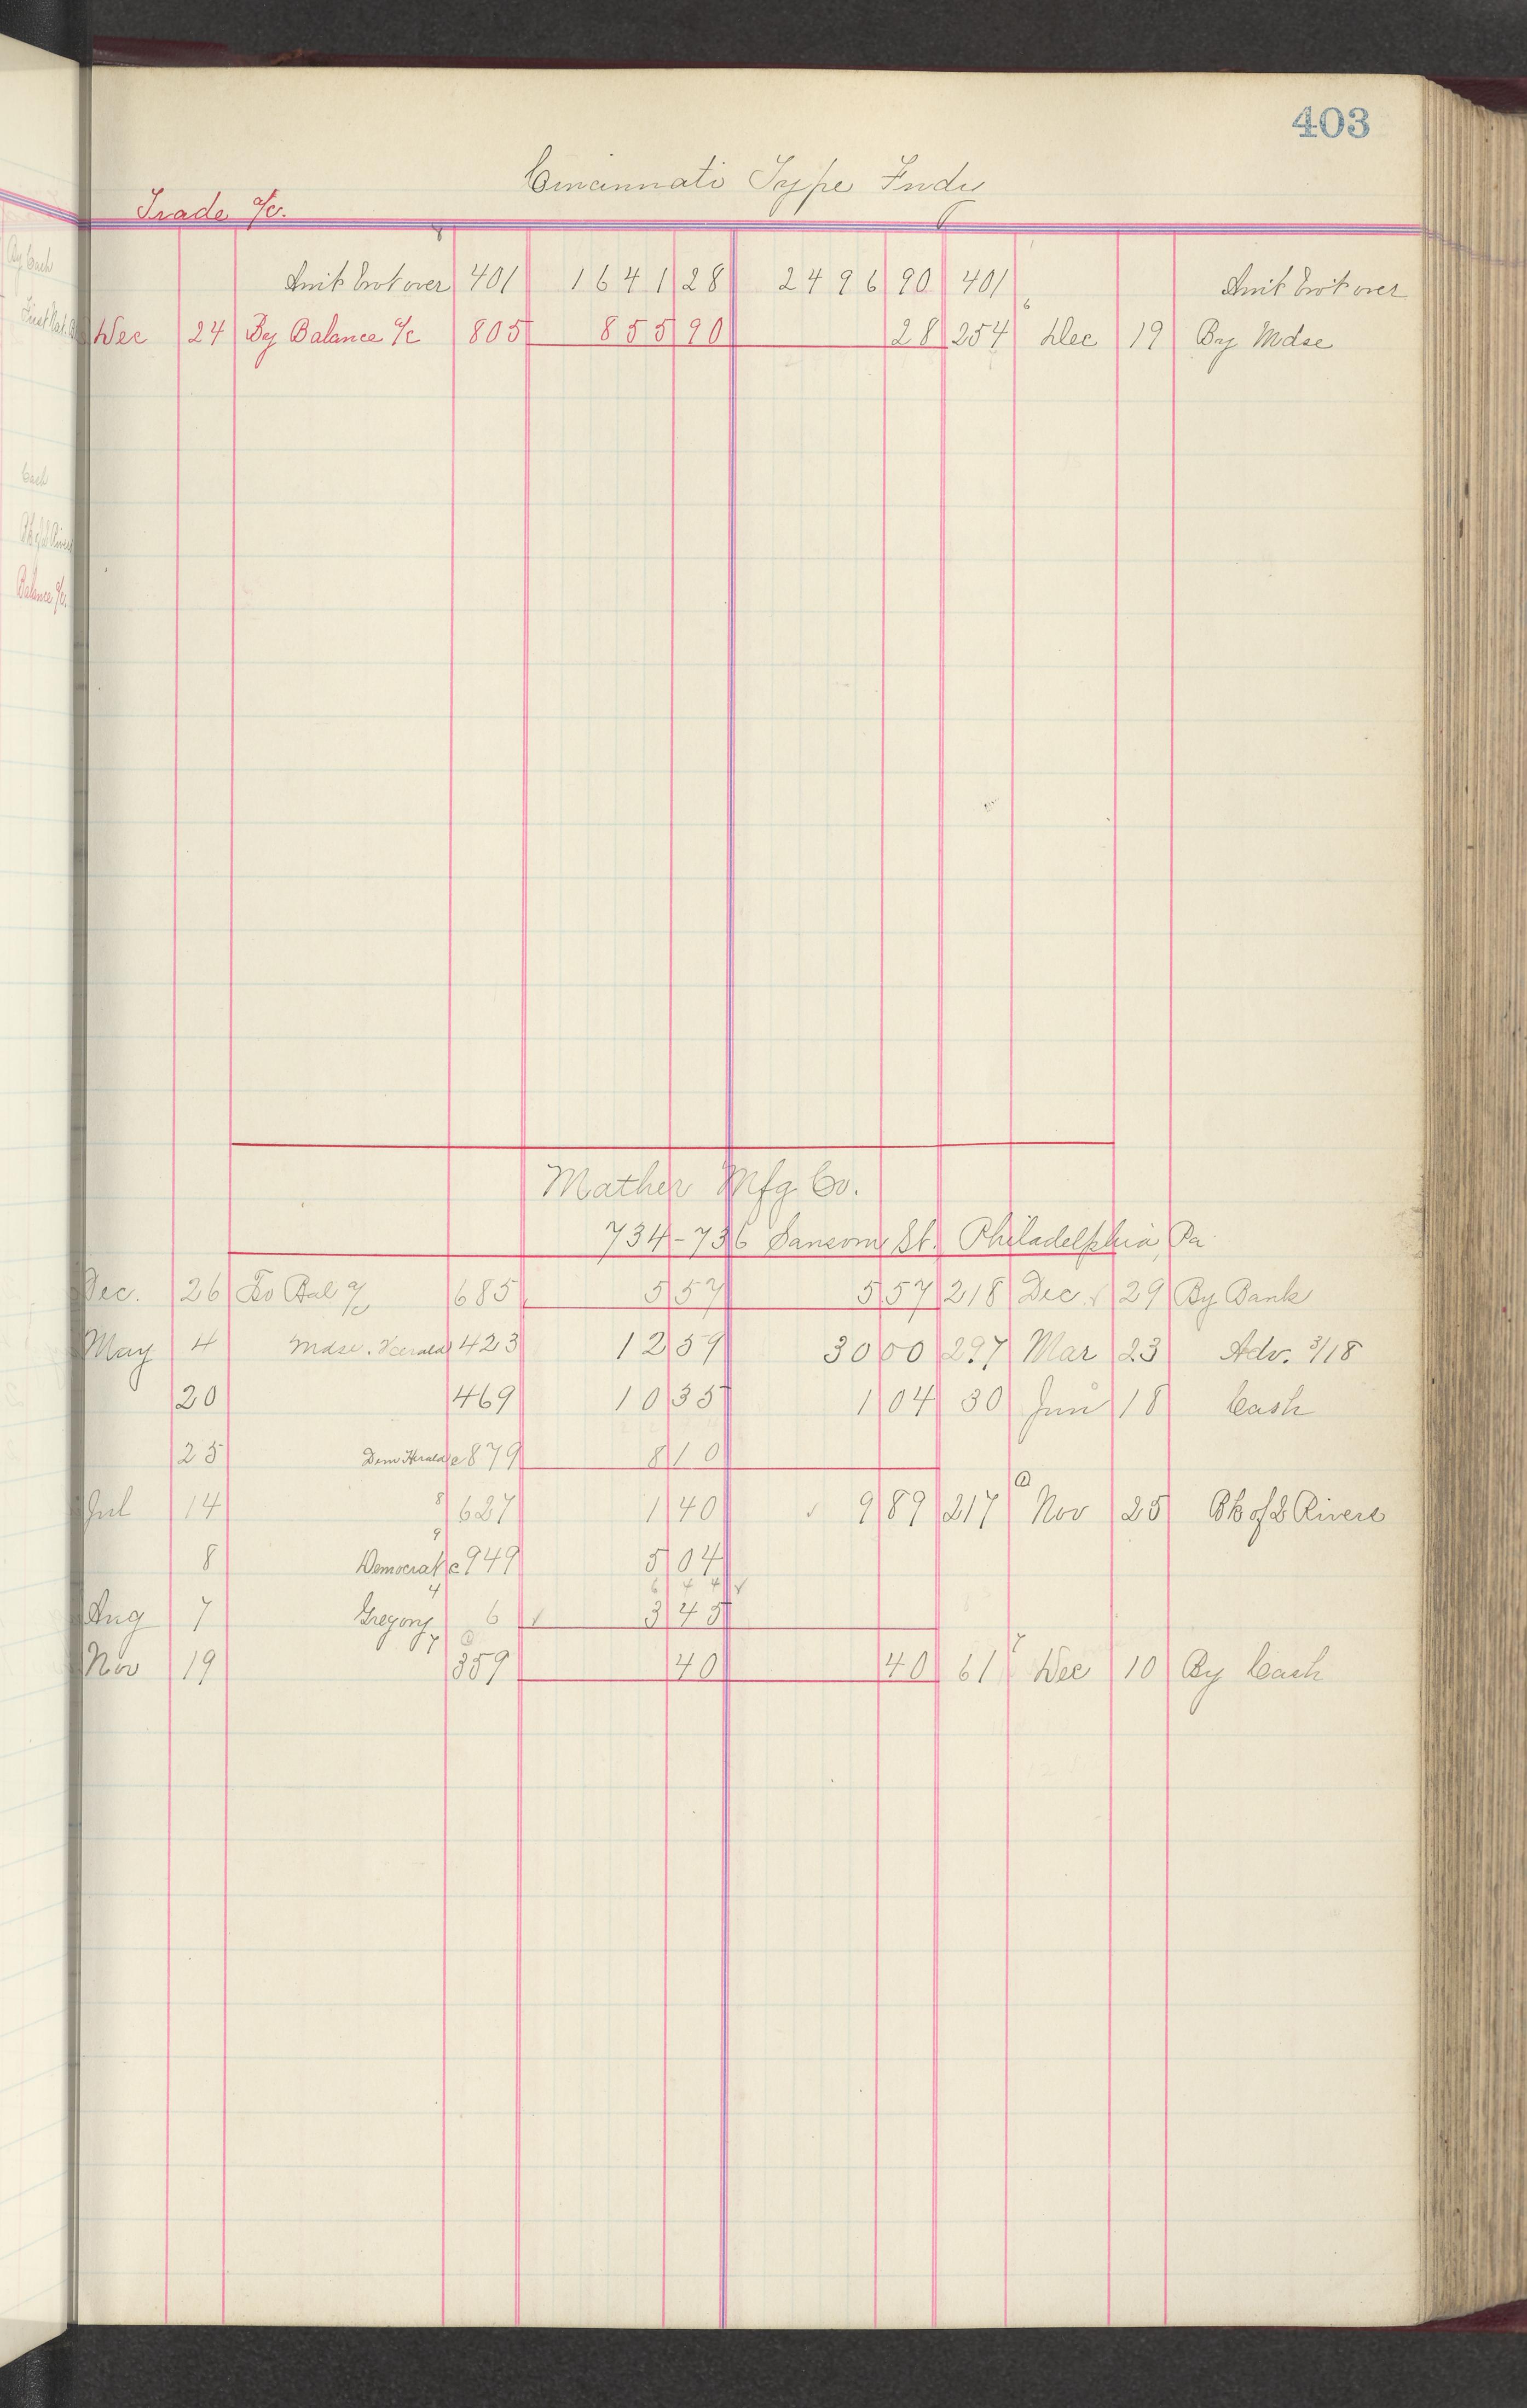 403
Cincinnati Type Fndy
Trade a/c.
Amt brot over 401 1641 28 2496 90 401 Amt brot over
Dec 24 By Balance a/c 805 855 90 28 254 6 Dec 19 By Mdse
Mather Mfg Co.
734-736 Sansom St. Philadelphia, Pa
Dec. 26 To Bal a/c 685 5 57 5 57 218 Dec 29 By Bank
May 4 Mdse. Herald 423 12 59 30 00 297 Mar 23 Adv. 3/18
20 469 10 35 1 04 30 Jun 18 Cash
25 Dem Herald c879 8 10
Jul 14 8 627 1 40 9 89 217 Nov 25 Bk of 2 Rivers
8 9 Democrat c949 5 04
Aug 7 4 Gregory 6 3 45
Nov 19 7 359 40 40 61 7 Dec 10 By Cash
By Cash
Cash
Balance a/c.